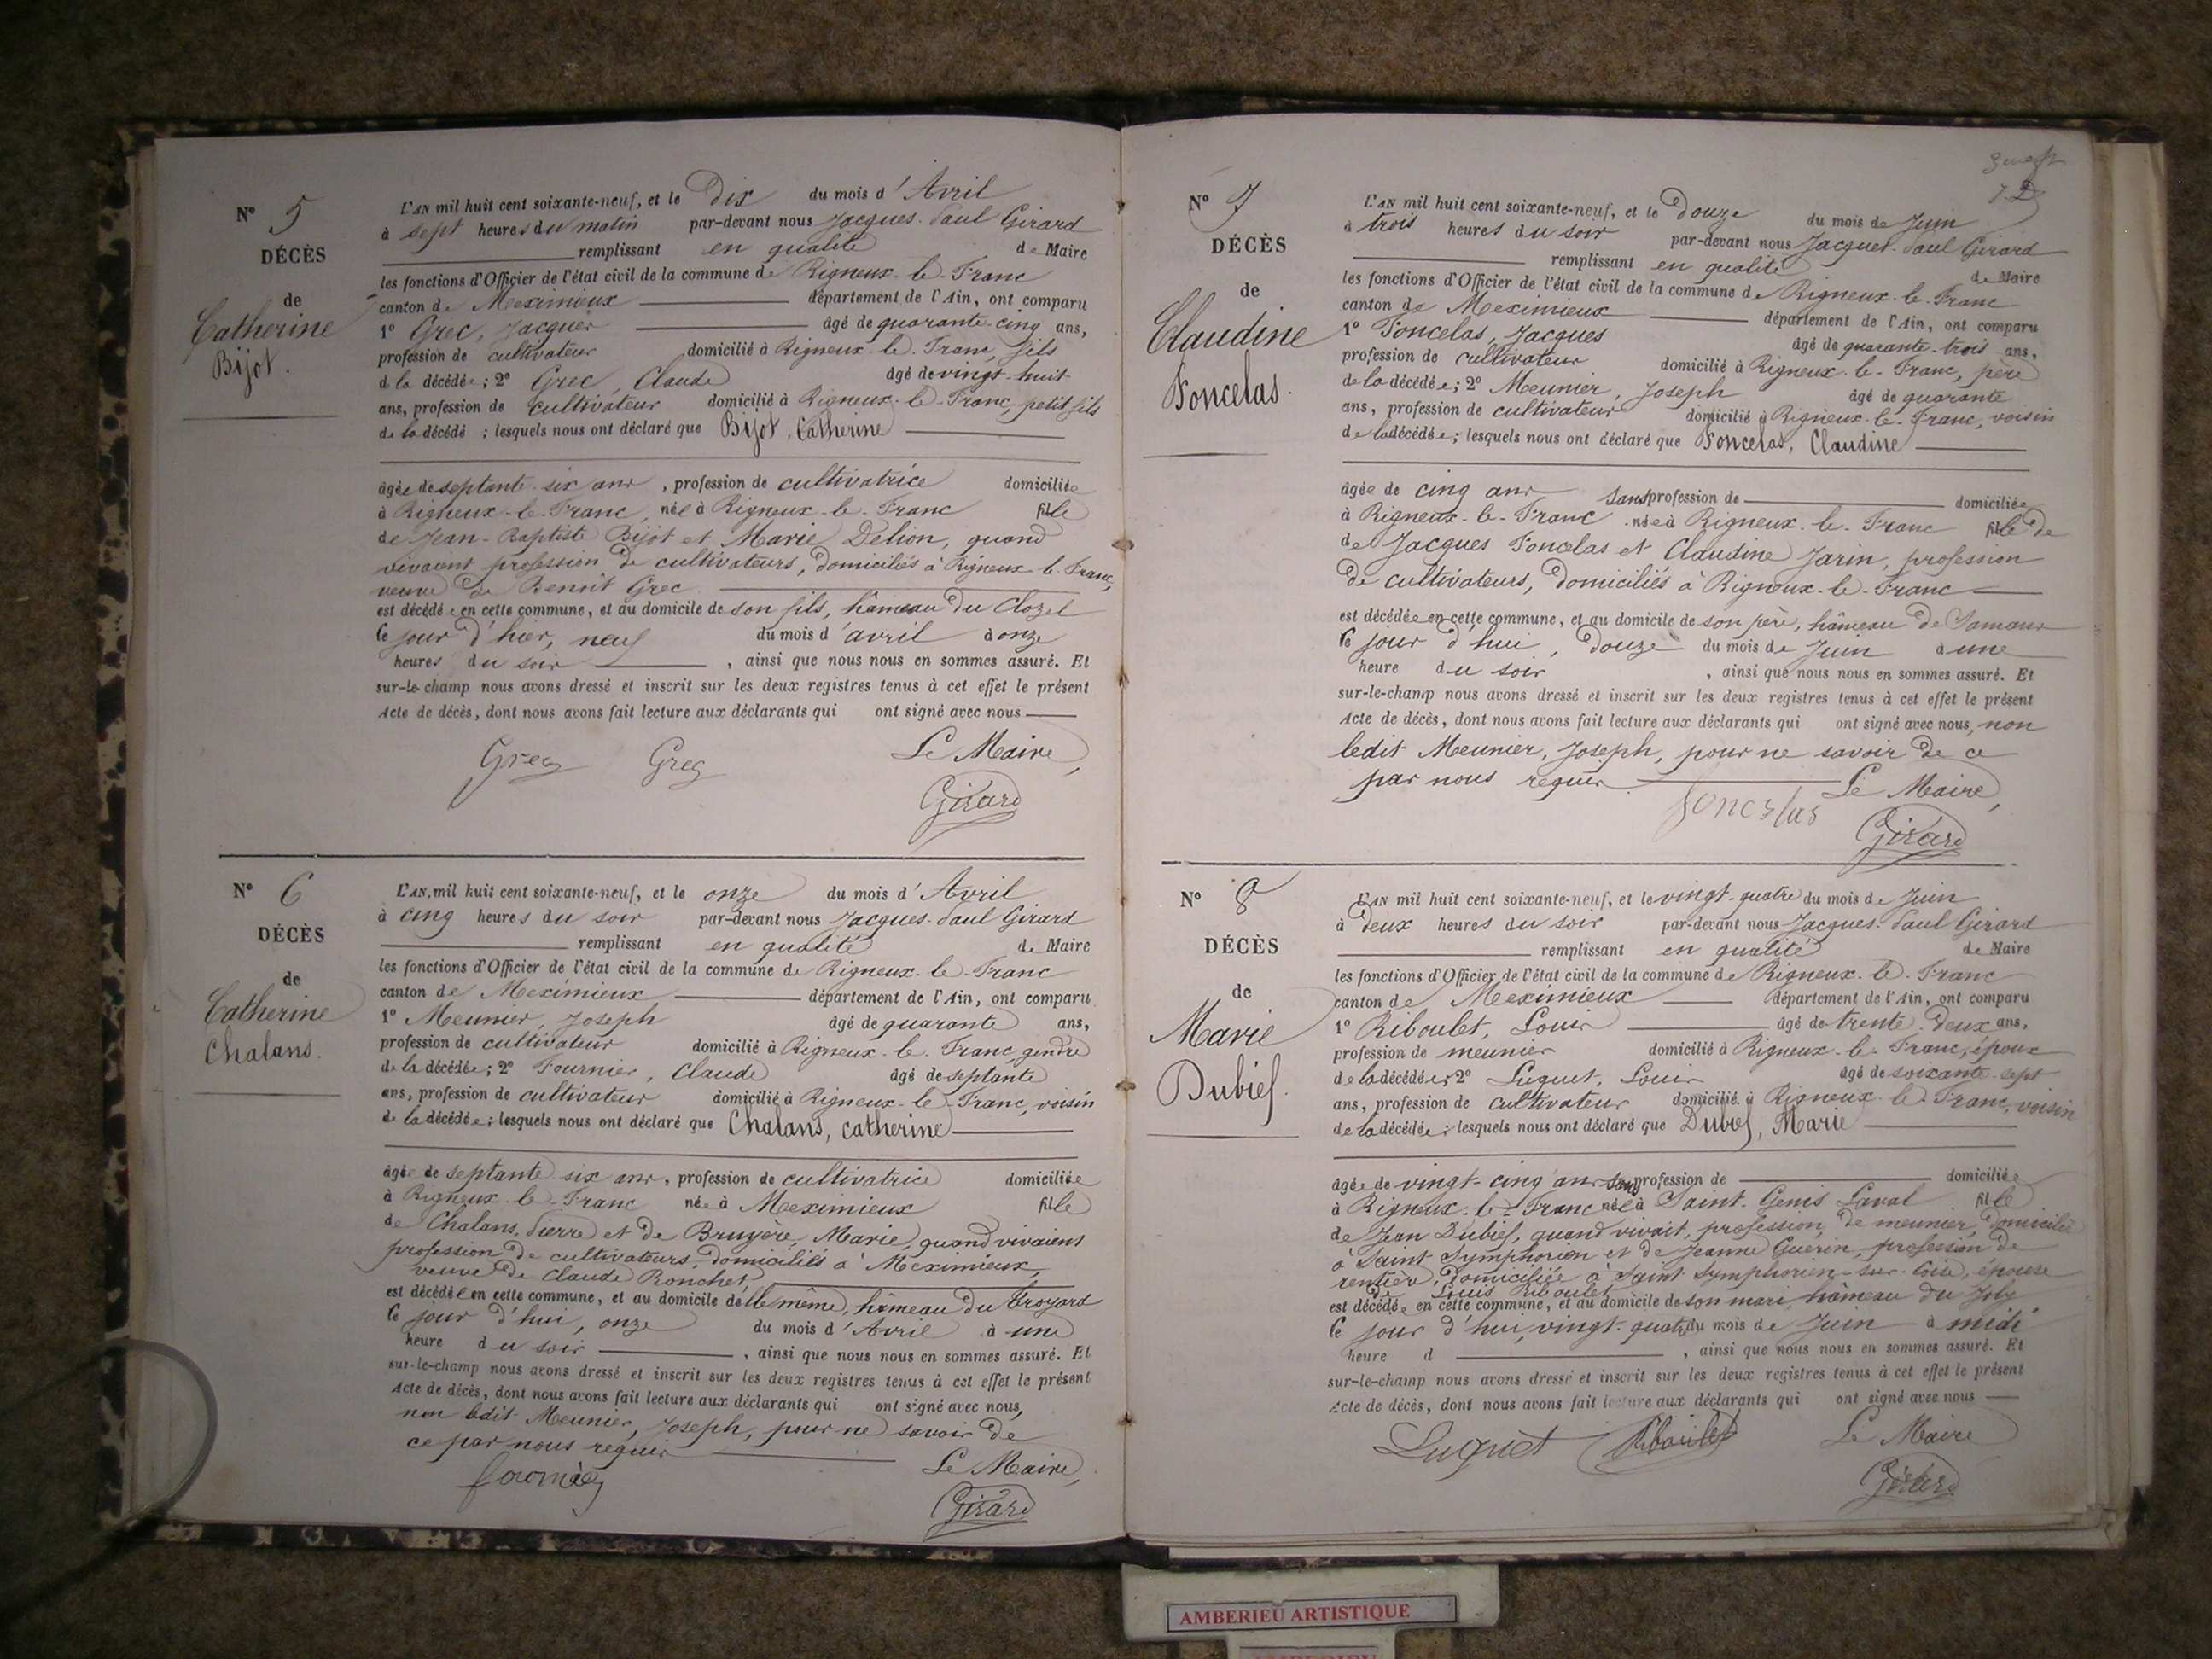 N° 5
DÉCÈS
de
Catherine
Bijot.
L'AN mil huit cent soixante-neuf, et le Dix du mois d'Avril
à sept heures du matin par-devant nous Jacques-Paul Girard
remplissant en qualité de Maire
les fonctions d'Officier de l'état civil de la commune de Rigneux-le-Franc
canton de Meximieux département de l'Ain, ont comparu
1° Grec, Jacques âgé de quarante-cinq ans,
profession de cultivateur domicilié à Rigneux-le-Franc, fils
de la décédée; 2° Grec, Claude âgé de vingt-huit
ans, profession de cultivateur domicilié à Rigneux-le-Franc, petit fils
de la décédé ; lesquels nous ont déclaré que Bijot, Catherine
âgée de septante-six ans, profession de cultivatrice domiciliée
à Rigneux-le-Franc, née à Rigneux-le-Franc fille
de Jean-Baptiste Bijot et Marie Delion, quand
vivaient profession de cultivateurs, domiciliés à Rigneux-le-Franc,
veuve de Benoit Grec
est décédée en cette commune, et au domicile de son fils, hâmeau du Clozel
le jour d'hier, neuf du mois d'avril à onze
heures du soir , ainsi que nous nous en sommes assuré. Et
sur-le-champ nous avons dressé et inscrit sur les deux registres tenus à cet effet le présent
Acte de décès, dont nous avons fait lecture aux déclarants qui ont signé avec nous
Grec Grec Le Maire,
Girard
N° 6
DÉCÈS
de
Catherine
Chalans.
L'AN mil huit cent soixante-neuf, et le onze du mois d'Avril
à cinq heures du soir par-devant nous Jacques-Paul Girard
remplissant en qualité de Maire
les fonctions d'Officier de l'état civil de la commune de Rigneux-le-Franc
canton de Meximieux département de l'Ain, ont comparu
1° Meunier, Joseph âgé de quarante ans,
profession de cultivateur domicilié à Rigneux-le-Franc, gendre
de la décédée; 2° Fournier, Claude âgé de septante
ans, profession de cultivateur domicilié à Rigneux-le-Franc, voisin
de la décédée; lesquels nous ont déclaré que Chalans, Catherine
âgée de septante six ans, profession de cultivatrice domiciliée
à Rigneux-le-Franc née à Meximieux fille
de Chalans, Pierre et de Bruyère, Marie, quand vivaient
profession de cultivateurs, domiciliés à Meximieux,
veuve de Claude Ronchet,
est décédée en cette commune, et au domicile d'elle même, hâmeau du Croyard
le jour d'hui, onze du mois d'Avril à une
heure du soir , ainsi que nous nous en sommes assuré. Et
sur-le-champ nous avons dressé et inscrit sur les deux registres tenus à cet effet le présent
Acte de décès, dont nous avons fait lecture aux déclarants qui ont signé avec nous,
non ledit Meunier, Joseph, pour ne savoir de
ce par nous requis
Le Maire,
Girard
N° 7
DÉCÈS
de
Claudine
Poncelas.
L'AN mil huit cent soixante-neuf, et le Douze du mois de Juin
à trois heures du soir par-devant nous Jacques-Paul Girard
remplissant en qualité de Maire
les fonctions d'Officier de l'état civil de la commune de Rigneux-le-Franc
canton de Meximieux département de l'Ain, ont comparu
1° Poncelas, Jacques âgé de quarante-trois ans,
profession de cultivateur domicilié à Rigneux-le-Franc, père
de la décédée; 2° Meunier, Joseph âgé de quarante
ans, profession de cultivateur domicilié à Rigneux-le-Franc, voisin
de la décédée; lesquels nous ont déclaré que Poncelas, Claudine
âgée de cinq ans, sans profession de domiciliée
à Rigneux-le-Franc née à Rigneux-le-Franc fille de
de Jacques Poncelas et Claudine Jarin, profession
de cultivateurs, domiciliés à Rigneux-le-Franc
est décédée en cette commune, et au domicile de son père, hâmeau de Samans
le jour d'hui, Douze du mois de Juin à une
heure du soir , ainsi que nous nous en sommes assuré. Et
sur-le-champ nous avons dressé et inscrit sur les deux registres tenus à cet effet le présent
Acte de décès, dont nous avons fait lecture aux déclarants qui ont signé avec nous, non
ledit Meunier, Joseph, pour ne savoir de ce
par nous requis Le Maire,
Poncelas Girard
N° 8
DÉCÈS
de
Marie
Dubief.
L'AN mil huit cent soixante-neuf, et le vingt-quatre du mois de Juin
à Deux heures du soir par-devant nous Jacques-Paul Girard
remplissant en qualité de Maire
les fonctions d'Officier de l'état civil de la commune de Rigneux-le-Franc
canton de Meximieux département de l'Ain, ont comparu
1° Riboulet, Louis âgé de trente-deux ans,
profession de meunier domicilié à Rigneux-le-Franc, époux
de la décédée; 2° Luquet, Louis âgé de soixante-sept
ans, profession de cultivateur domicilié à Rigneux-le-Franc, voisin
de la décédée; lesquels nous ont déclaré que Dubief, Marie
âgée de vingt-cinq ans sans profession de domiciliée
à Rigneux-le-Franc née à Saint-Genis Laval fille
de Jean Dubief, quand vivait, profession de meunier, domicilié
à Saint Symphorien et de Jeanne Guérin, profession de
rentière, domiciliée à Saint Symphorien-sur-Coise, épouse
de Louis Riboulet
est décédée en cette commune, et au domicile de son mari, hâmeau du Joly
le jour d'hui, vingt-quatre du mois de Juin à midi
heure d , ainsi que nous nous en sommes assuré. Et
sur-le-champ nous avons dressé et inscrit sur les deux registres tenus à cet effet le présent
Acte de décès, dont nous avons fait lecture aux déclarants qui ont signé avec nous
Luquet Riboulet Le Maire
Girard
AMBERIEU ARTISTIQUE